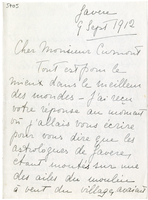 5805
Javea
9 Sept 1912
Cher Monsieur Cumont
Tout est pour le
mieux dans le meilleur
des mondes – j'ai reçu
votre réponse au moment
où j'allais vous écrire
pour vous dire que les
astrologues de Javea,
étant montés sur
des ailes du moulin
à vent du village, avaient